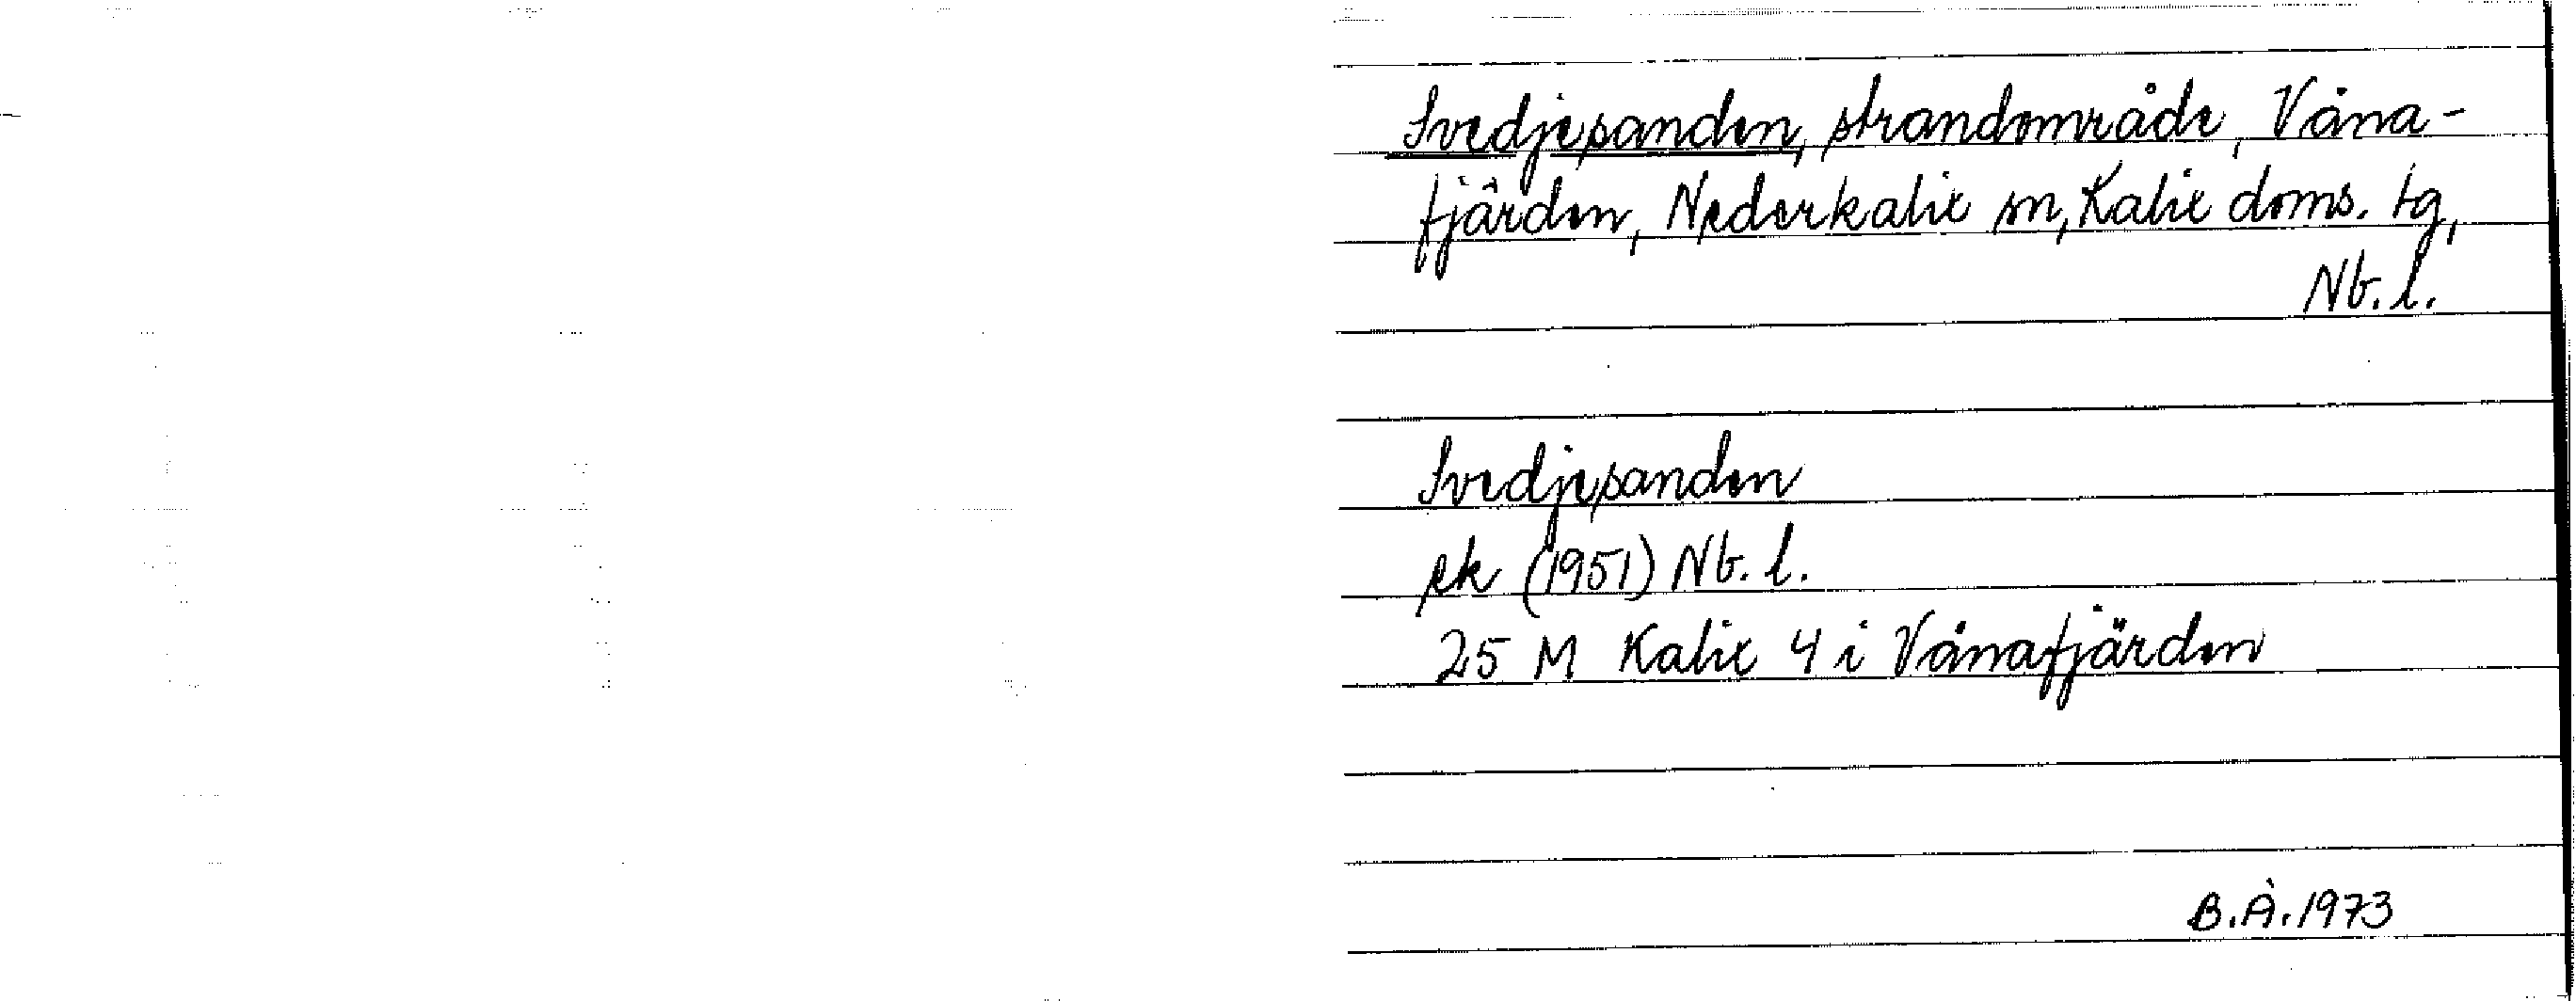 Svedjesanden, strandområde, Våna-
fjärden, Nederkalix sn, Kalix doms. tg,
Nb. l.
Svedjesanden
ek (1951) Nb. l.
25 M Kalix 4 i Vånafjärden
B.Å. 1973